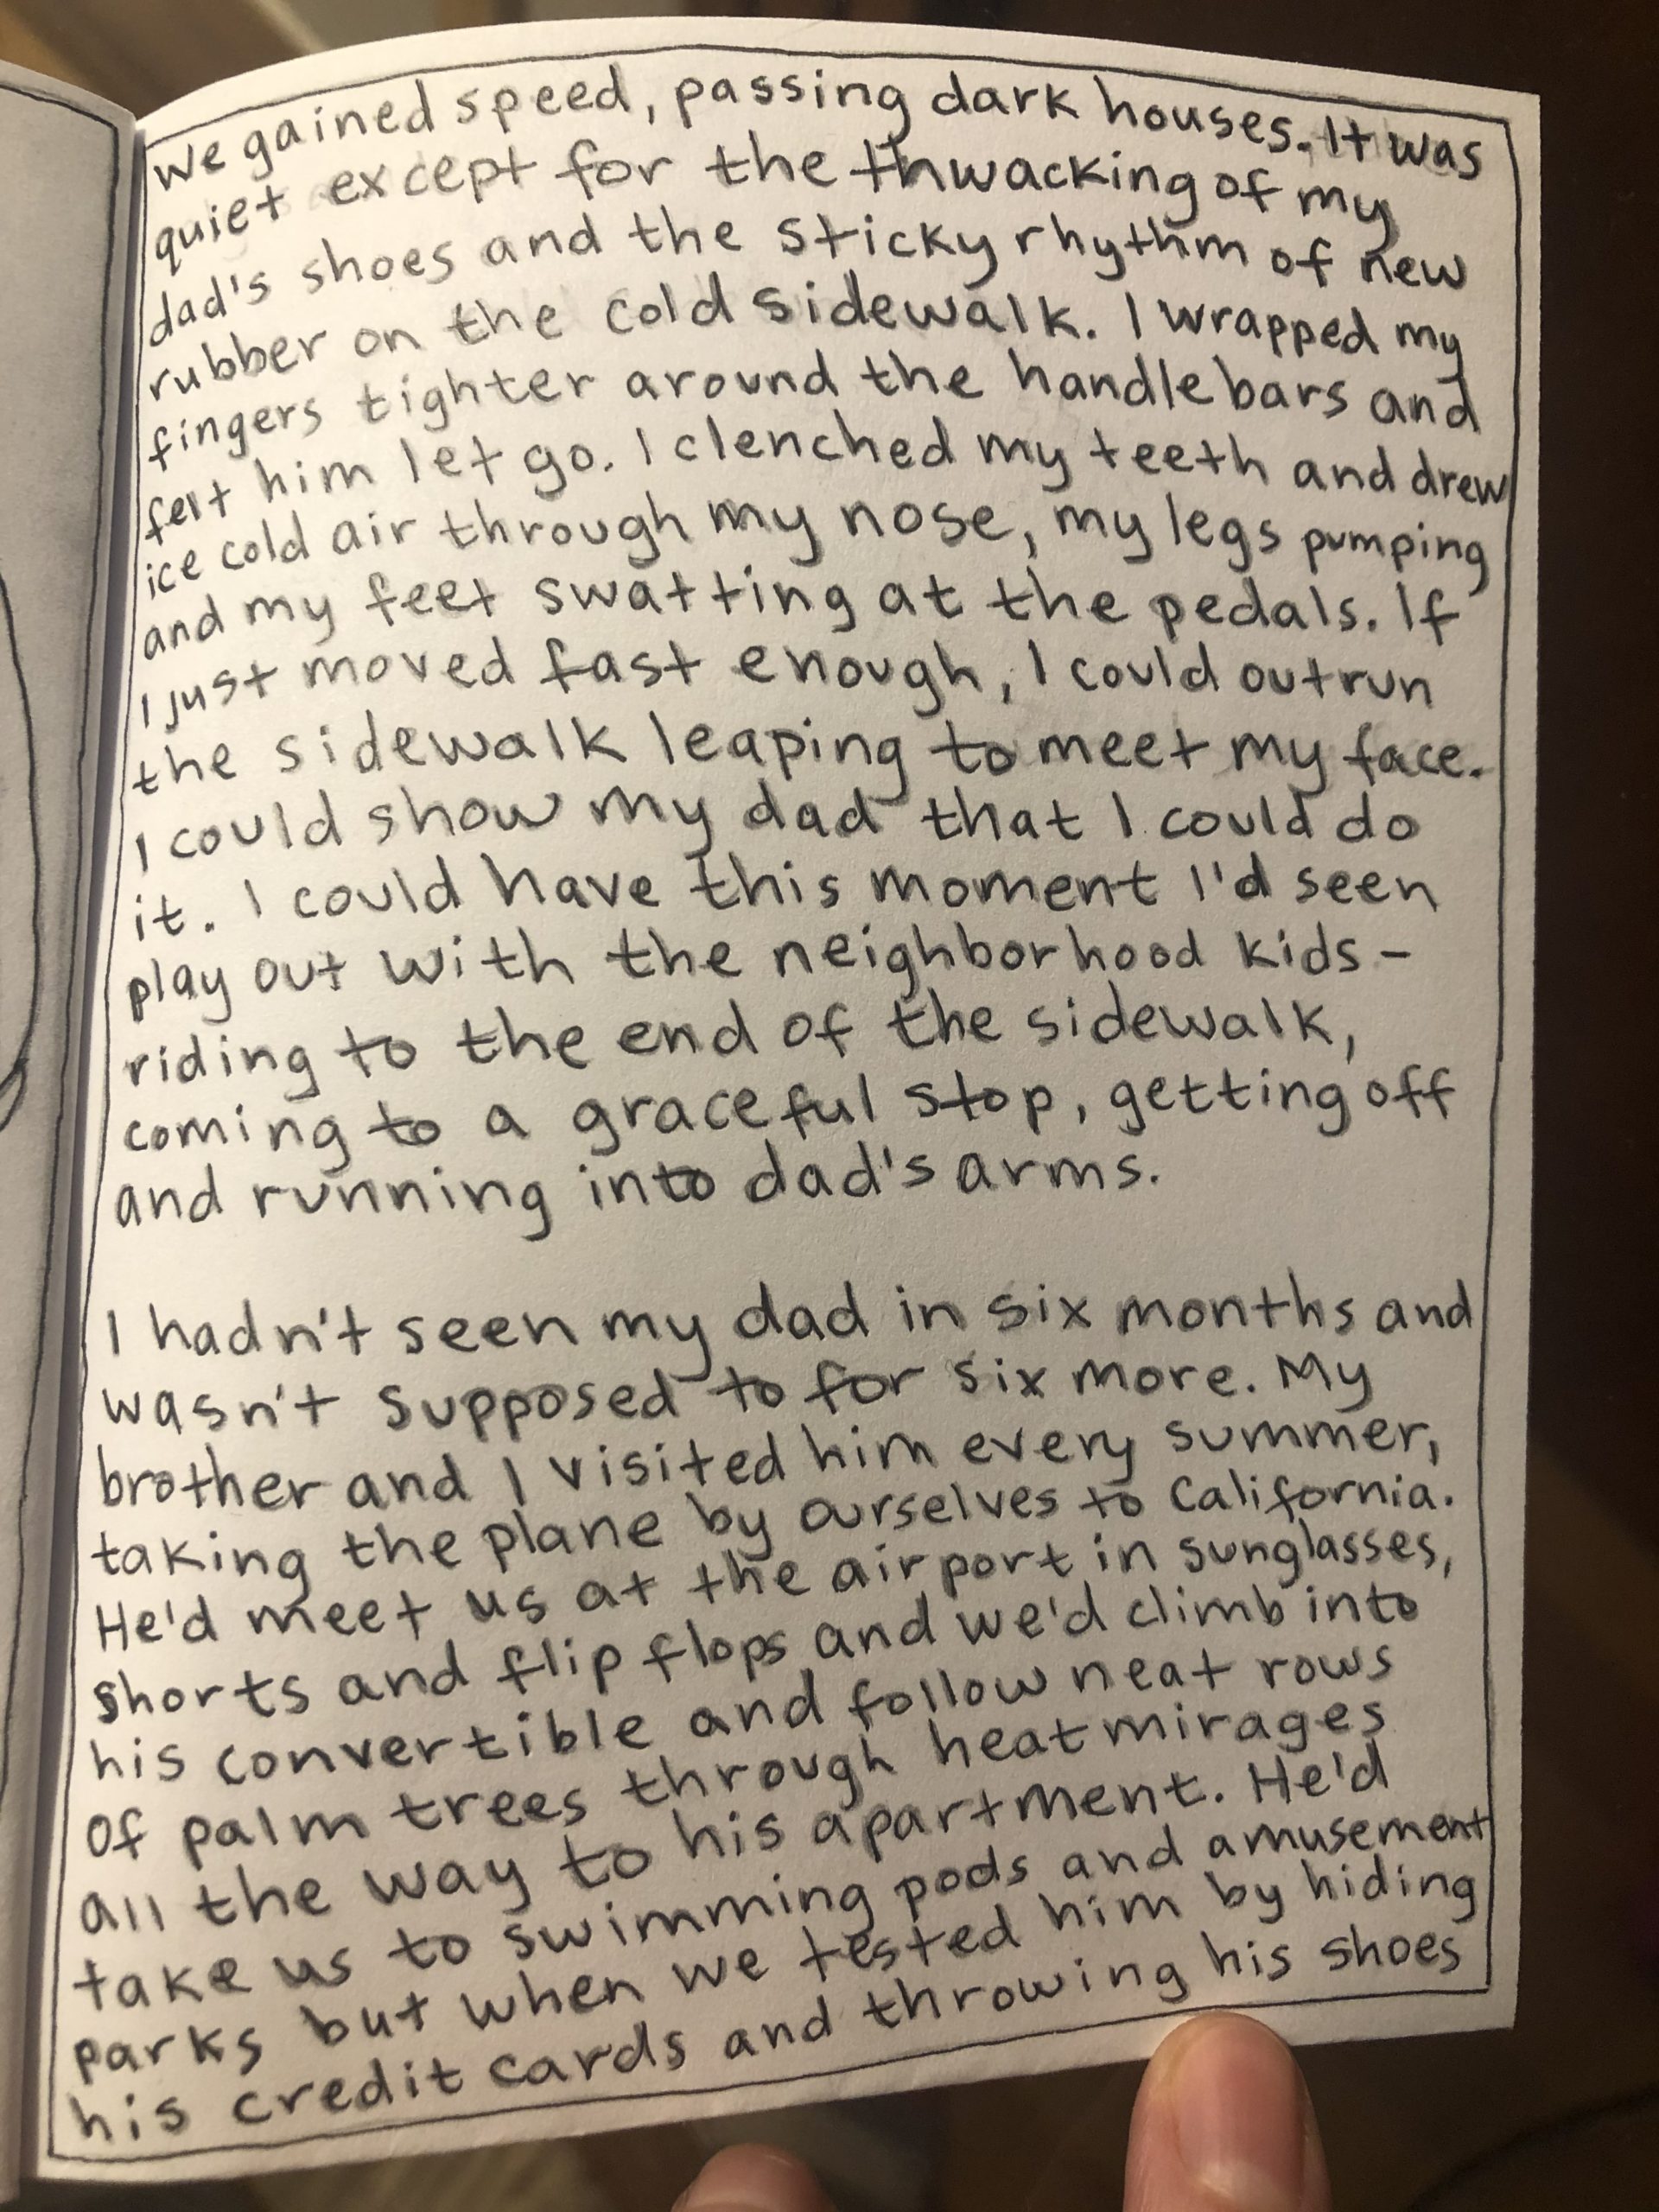 we gained speed, passing dark houses. It was
quiet except for the thwacking of my
dad's shoes and the sticky rhythm of new
rubber on the cold sidewalk. I wrapped my
fingers tighter around the handlebars and
felt him let go. I clenched my teeth and drew
ice cold air through my nose, my legs pumping
and my feet swatting at the pedals. If
I just moved fast enough, I could outrun
the sidewalk leaping to meet my face.
I could show my dad that I could do
it. I could have this moment I'd seen
play out with the neighborhood kids-
riding to the end of the sidewalk,
coming to a graceful stop, getting off
and running into dad's arms.
I hadn't seen my dad in six months and
wasn't supposed to for six more. My
brother and I visited him every summer,
taking the plane by ourselves to California.
He'd meet us at the airport in sunglasses,
shorts and flip flops and we'd climb into
his convertible and follow neat rows
of palm trees through heat mirages
all the way to his apartment. He'd
take us to swimming pods and amusement
parks but when we tested him by hiding
his credit cards and throwing his shoes